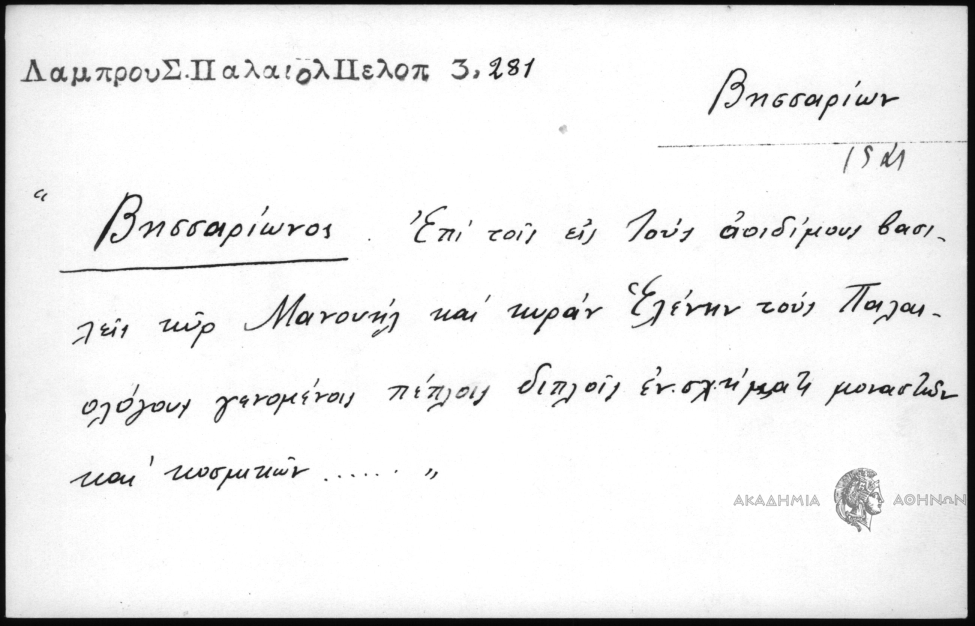 ΛαμπρουΣ.ΠαλαιολΠελοπ 3,281
Βησσαρίων
"Βησσαρίωνος. Ἐπί τοῖς εἰς τούς ἀοιδίμους βασι-
λεῖς κῦρ Μανουήλ καί κυράν Ἑλένην τούς Παλαι-
ολόγους γενομένοις πέπλοις διπλοῖς ἐν σχήματι μοναστῶν
και' κοσμικῶν ...... "
ΑΚΑΔΗΜΙΑ ΑΘΗΝΩΝ